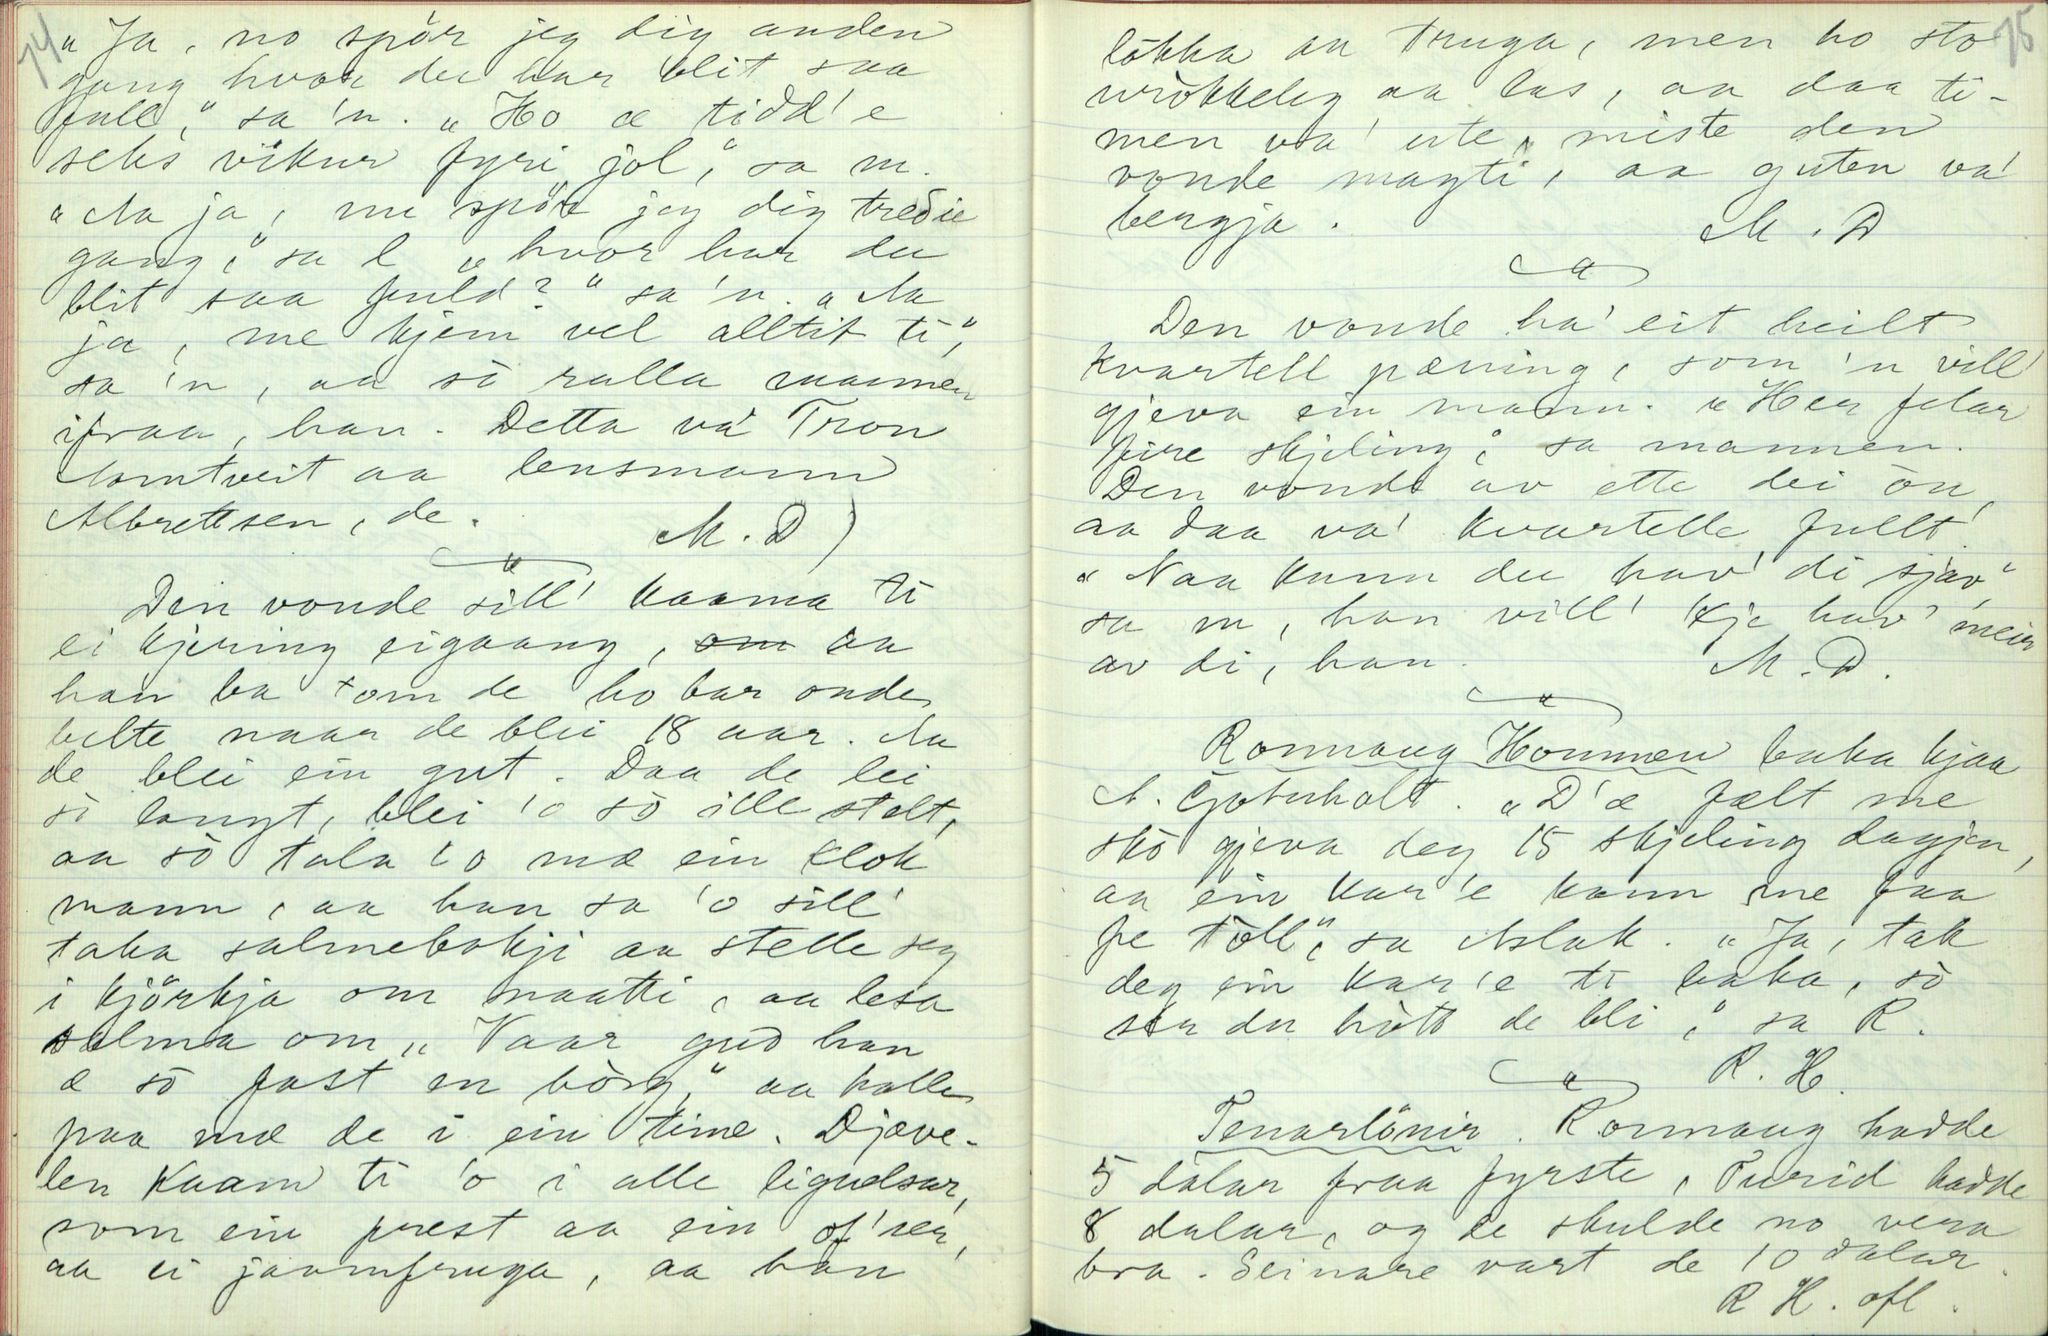 74
„Ja, no spör jeg dig anden
gang hvor du har blit saa
full,“ sa 'n. „Ho æ tidd' e
seks vikur fyri jol,“ sa m.
„Aa ja, nu spör jeg dig tredie
gang,“ sa l „hvor har du
blit saa fuld?“ sa'n. „Aa
ja, me kjem vel alltit ti“,
sa 'n, aa sò ralla mannen
ifraa, han. Detta va' Tron
Aamtveit aa lensmann
Albrettsen, de. M. D)
Den vonde sill' kaama ti
ei kjering eigaang, om aa
han ba om de ho bar onde
belte naar de blei 18 aar. Aa
de blei ein gut. Daa de lei
sò langt, blei 'o sò ille stelt,
aa sò tala 'o mæ ein klok
mann, aa han sa 'o sill'
taka salmebokji aa stelle seg
i kjörkja om naatti, aa lesa
salma om „Vaar gud han
æ sò fast en bòrg,“ aa halle
paa mæ de i ein time. Djæve-
len kaam ti 'o i alle ligudsar,
som ein prest aa ein of'ser,
aa ei jaamfruga, aa han
75
lòkka aa truga, men ho sto
uròkkeleg aa las, aa daa ti-
men va' ute, miste den
vonde magti, aa guten va'
bergja. M. D
Den vonde ha' eit heilt
kvartell pæning, som 'n vill'
gjeva ein mann. „Her felar
fire skjeling,“ sa mannen.
Den vonde av ette dei òn,
aa daa va' kvartelle fullt.
„Naa kann du hav' di sjav“
sa m, han vill' kje hav' meir
av di, han. M. D.
Ronnaug Hommen baka kjaa
A. Gjoterholt. „D'æ fælt me
skò gjeva deg 15 skjeling dagjen,
aa ein kar'e kann me faa
fe tòll“, sa Aslak. „Ja, tak
deg ein kar'e ti baka, sò
ser du hòtt de bli,“ sa R.
R. H.
Tenarlönir. Ronnaug hadde
5 dalar fraa fyrste, Turid hadde
8 dalar, og de skulde no vera
bra. Seinare vart de 10 dalar.
R H. ofl.